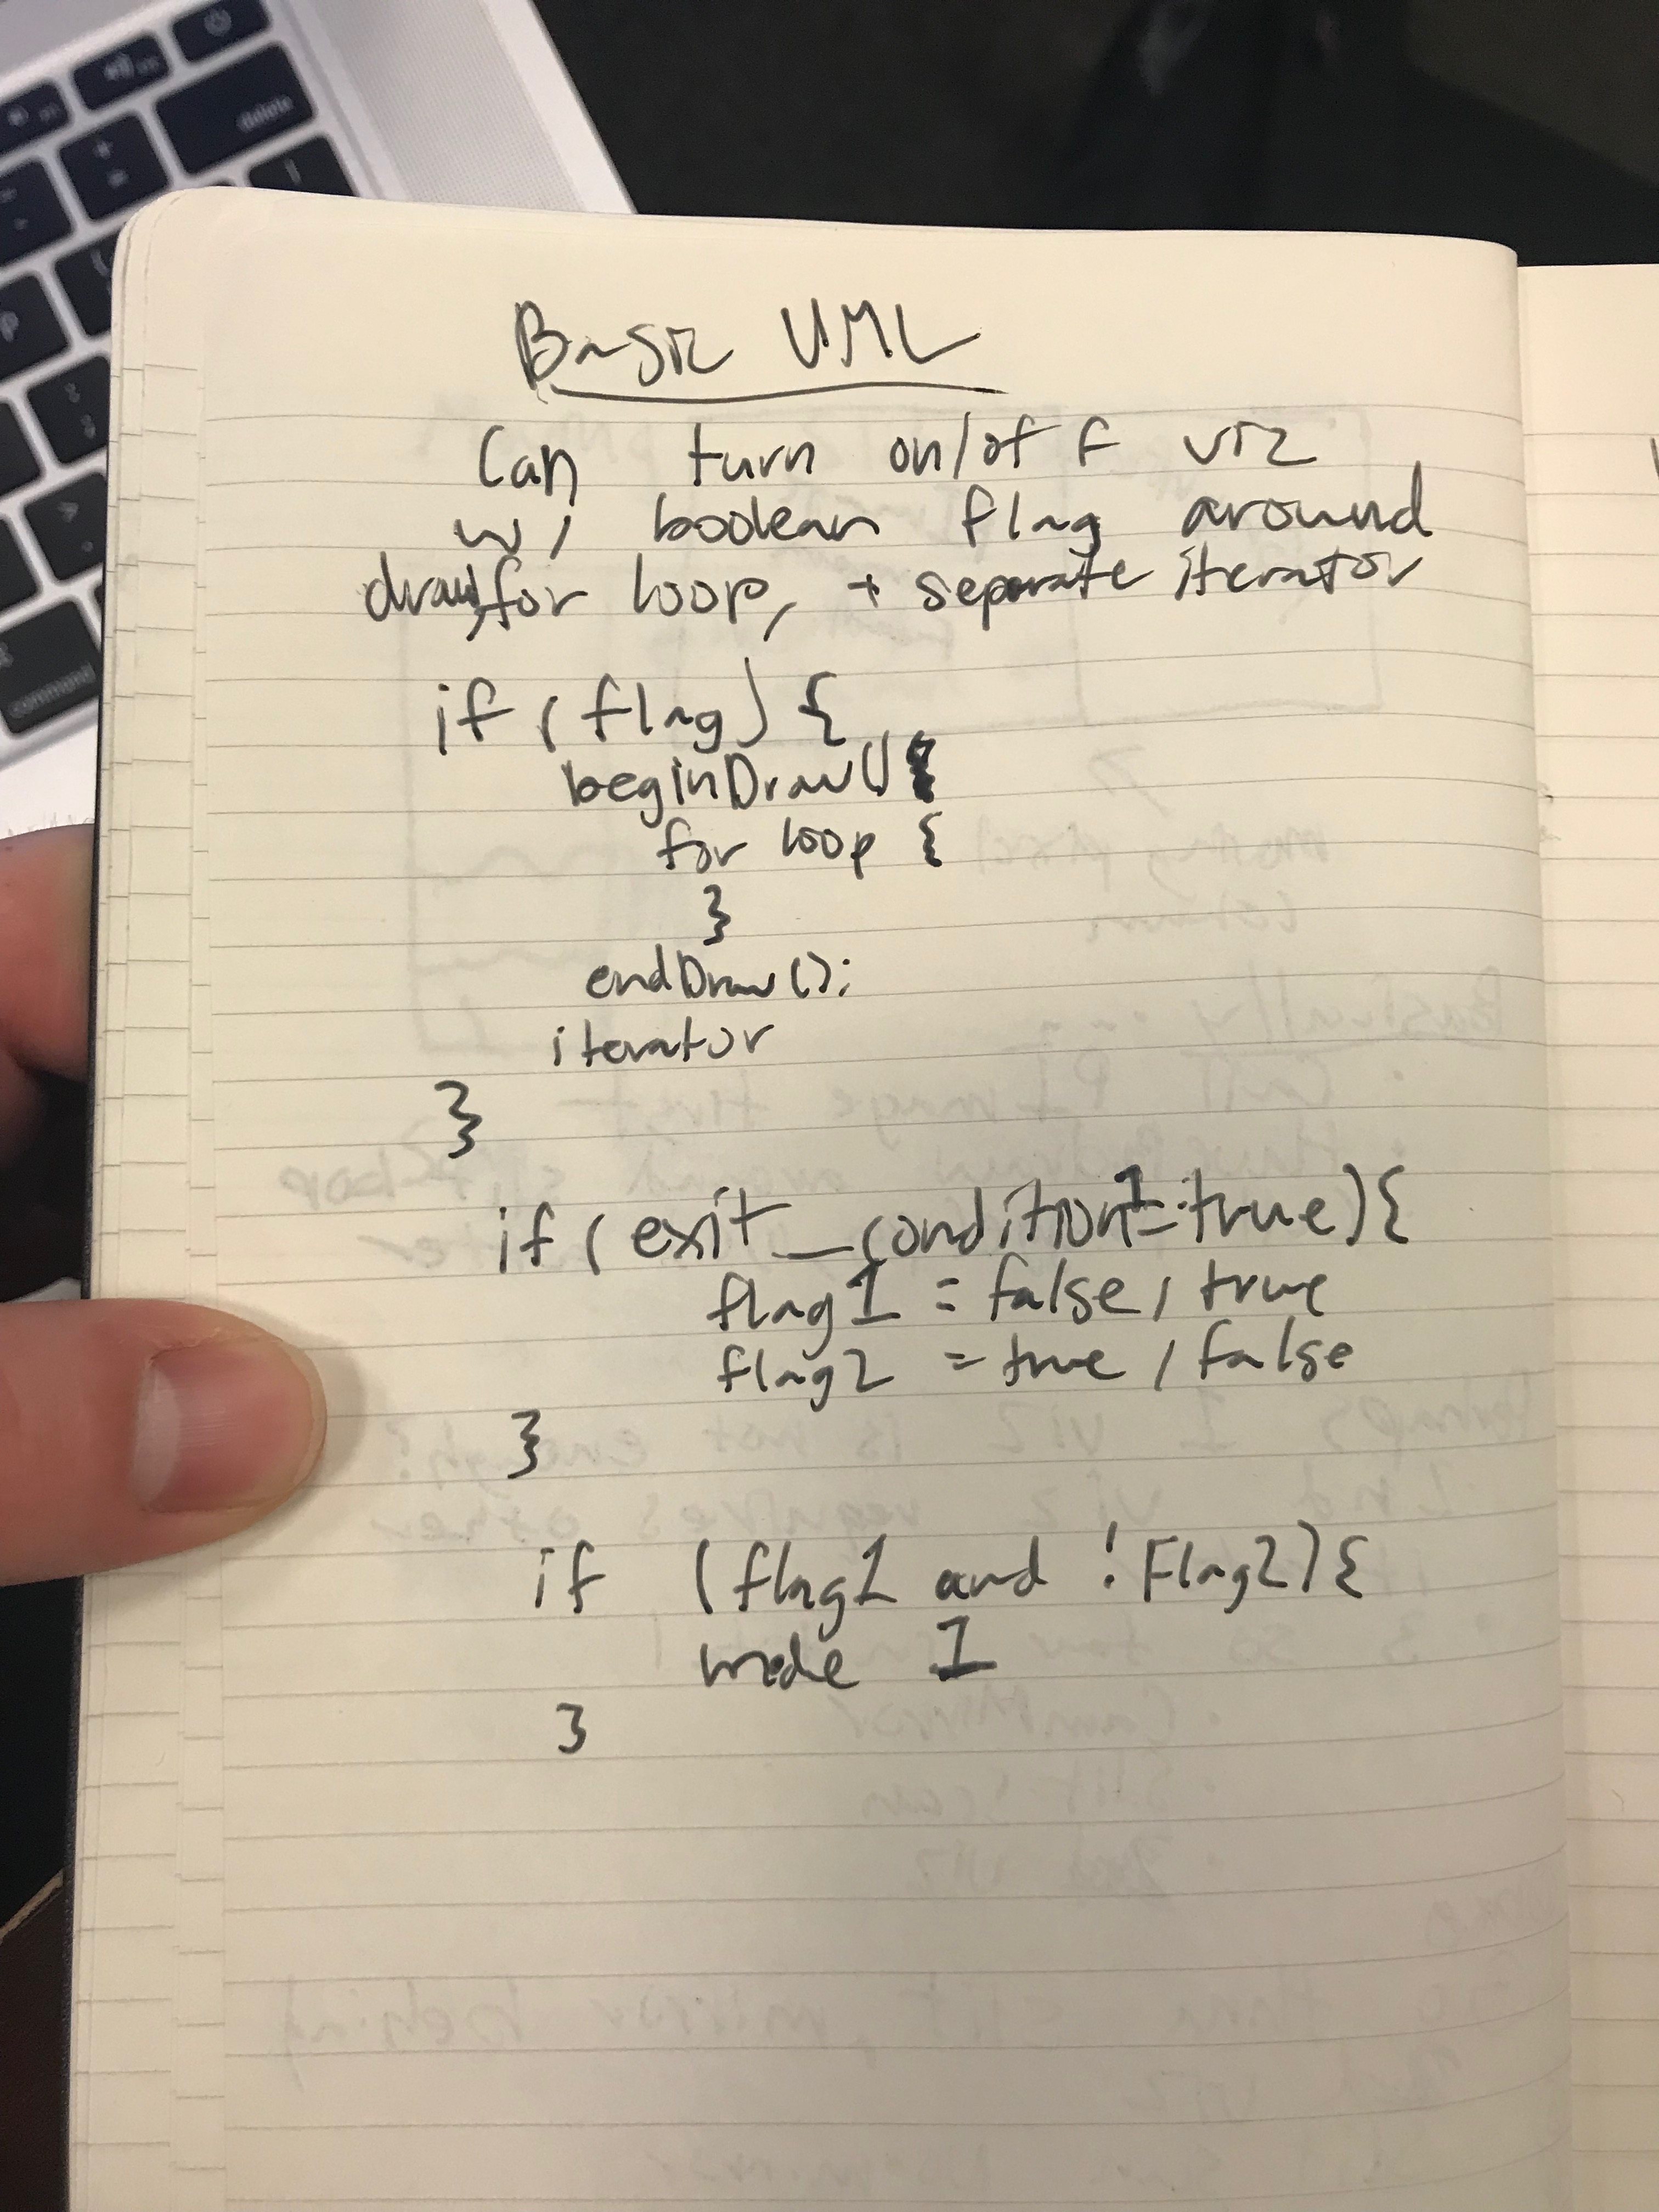 delete
command
Basic UML
Can turn on/off viz
w/ boolean flag around
draw, for loop, + separate iterator
if (flag) {
beginDraw()
for loop {
}
endDraw();
iterator
}
if (exit_condition1=true){
flag1 = false, true
flag2 = true, false
}
if (flag1 and !Flag2){
mode 1
}